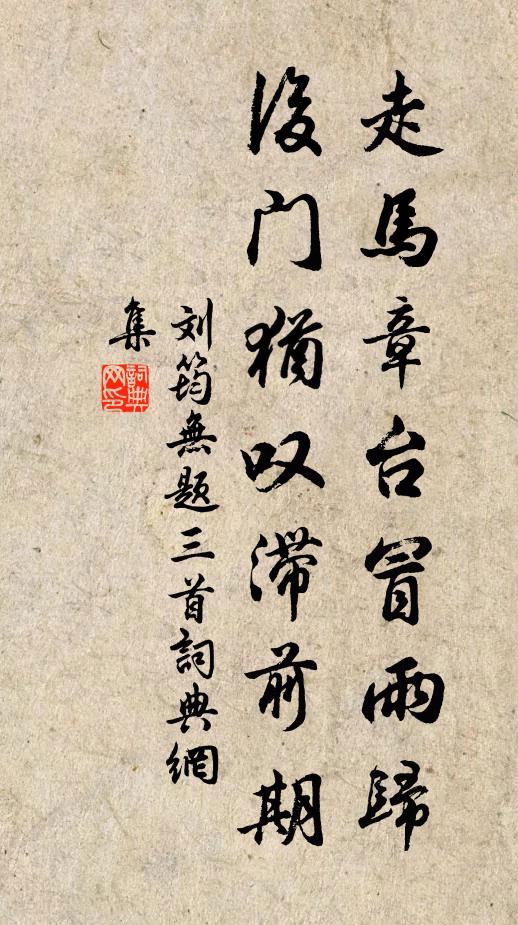 走馬章台冒雨歸
後门猶叹滞前期
刘筠無题三首詞典網
集
詞典
网印